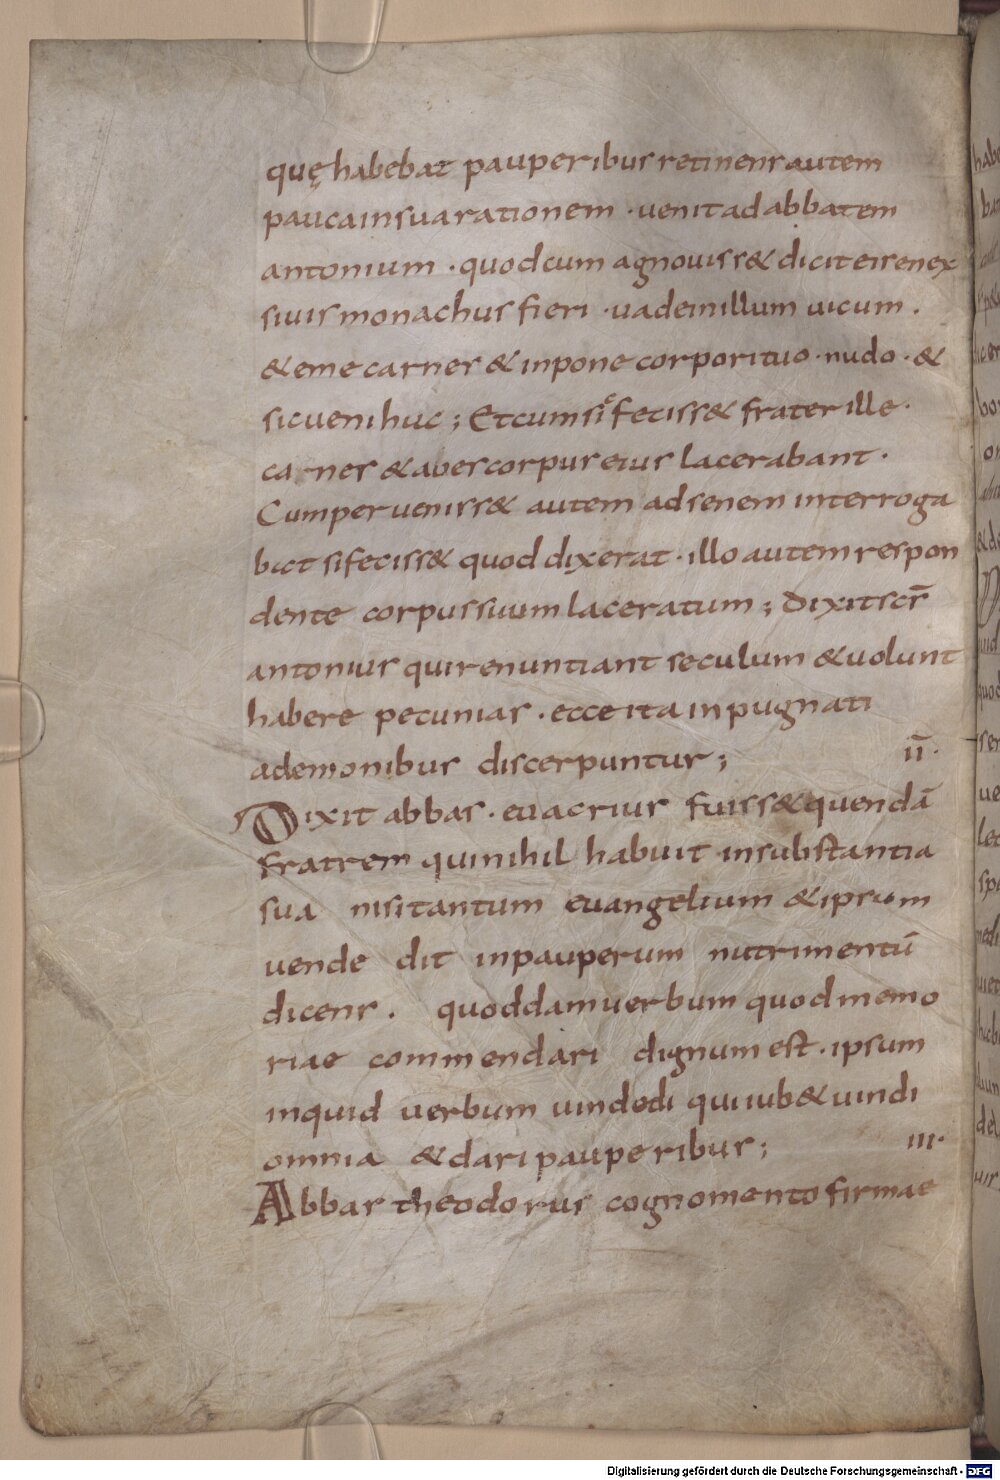 quę habebat pauperibus retinens autem
pauca in sua rationem · uenit ad abbatem
antonium · quod cum agnouiss& dicit ei senex
siuis monachus fieri · uade in illum uicum .
& eme carnes & inpone corpori tuo · nudo · &
sic ueni huc ; Et cum sic feciss& frater ille ·
canes & abes corpus eius lacerabant ·
Cum peruenirss& autem ad senem interroga
bat si feciss& quod dixerat · illo autem respon
dente corpus suum laceratum ; Dixit scs̄
antonius qui renuntiant seculum & uolunt
habere pecunias · ecce ita inpugnati
ademonibus discerpuntur ;
II ·
Dixit abbas · euacrius fuiss& quendā
fratrem qui nihil habuit in substantia
sua nisi tantum euangelium & ipsum
uende dit in pauperum nutrimentū
dicens . quoddam uerbum quod memo
riae commendari dignum est · ipsum
inquid uerbum uindedi qui iub& uindi
omnia & dari pauperibus ;
III ·
Abbas theodorus cognomento firmae
Digitalisierung gefördert durch die Deutsche Forschungsgemeinschaft - DFG